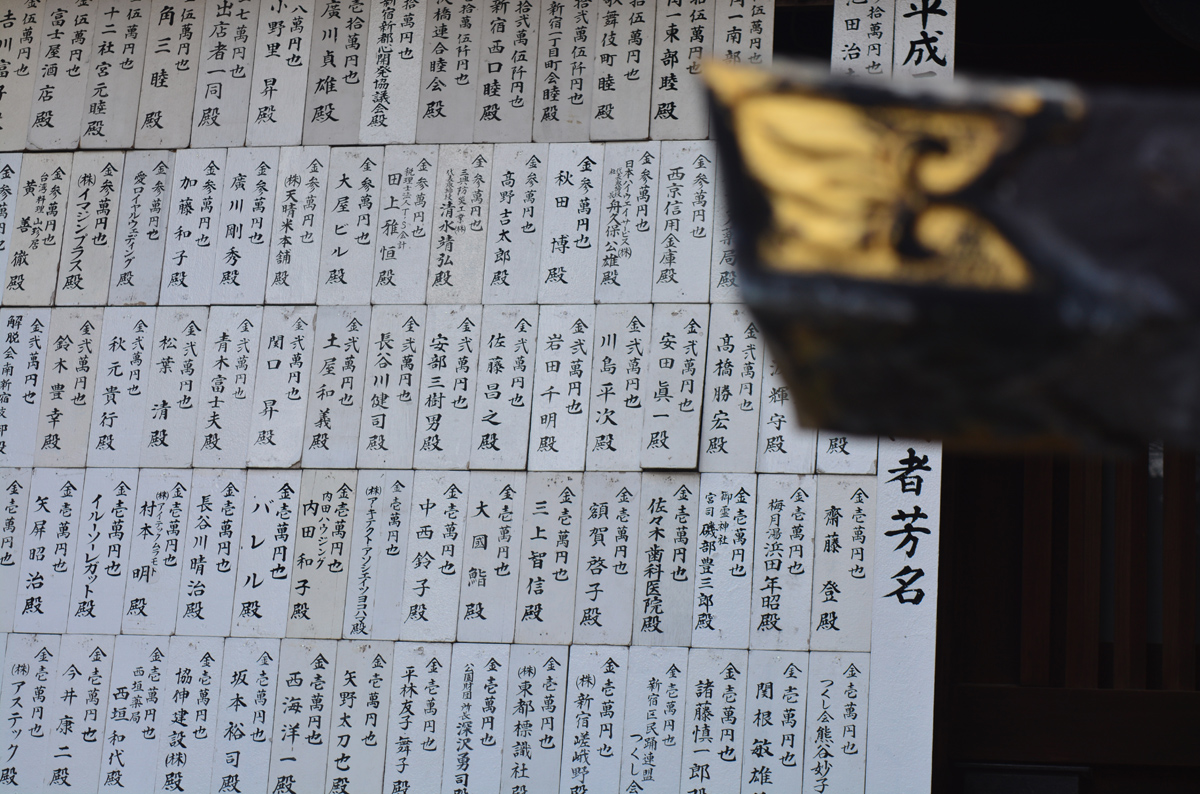 平成
者芳名
拾萬円也
池田治
拾伍萬円也
一南部
拾伍萬円也
一東部睦殿
拾伍萬円也
歌舞伎町睦殿
拾弐萬伍仟円也
新宿一丁目町会睦殿
拾弐萬伍仟円也
新宿西口睦殿
弐萬伍仟円也
橋連合睦会殿
拾萬円也
新宿新都心開発協議会殿
壱拾萬円也
廣川貞雄殿
八萬円也
小野里昇殿
七萬円也
出店者一同殿
伍萬円也
角三睦殿
伍萬円也
十二社宮元睦殿
金伍萬円也
富士屋酒店殿
金伍萬円也
吉川富
金参萬円也
西京信用金庫殿
金参萬円也
日本ハイウエイサービス(株)
舟久保公雄殿
金参萬円也
秋田博殿
金参萬円也
高野吉太郎殿
金参萬円也
清水靖弘殿
金参萬円也
田上雅恒殿
金参萬円也
大屋ビル殿
金参萬円也
(株)天晴米本舗殿
金参萬円也
廣川剛秀殿
金参萬円也
加藤和子殿
金参萬円也
愛ロイヤルウェディング殿
金参萬円也
(株)イマジンプラス殿
金参萬円也
台湾料理 山珍居
黄善徹殿
金参萬円也
輝守殿
殿
金弐萬円也
髙橋勝宏殿
金弐萬円也
安田眞一殿
金弐萬円也
川島平次殿
金弐萬円也
岩田千明殿
金弐萬円也
佐藤昌之殿
金弐萬円也
安部三樹男殿
金弐萬円也
長谷川健司殿
金弐萬円也
土屋和義殿
金弐萬円也
関口昇殿
金弐萬円也
青木富士夫殿
金弐萬円也
松葉清殿
金弐萬円也
秋元貴行殿
金弐萬円也
鈴木豊幸殿
金弐萬円也
解脱会南新宿支部殿
金壱萬円也
齋藤登殿
金壱萬円也
梅月湯浜田年昭殿
金壱萬円也
御霊神社
宮司磯部豊三郎殿
金壱萬円也
佐々木歯科医院殿
金壱萬円也
額賀啓子殿
金壱萬円也
三上智信殿
金壱萬円也
大國鮨殿
金壱萬円也
中西鈴子殿
金壱萬円也
(株)アキテクトアソシエイツヨコハマ殿
金壱萬円也
内田ハウジング
内田和子殿
金壱萬円也
バレル殿
金壱萬円也
長谷川晴治殿
金壱萬円也
(株)アイテックムラモト
村本明殿
金壱萬円也
イル・ソーレガット殿
金壱萬円也
矢屏昭治殿
金壱萬円也
金壱萬円也
つくし会熊谷妙子
金壱萬円也
関根敏雄
金壱萬円也
諸藤慎一郎
金壱萬円也
新宿区民踊連盟
つくし会
金壱萬円也
(株)新宿嵯峨野
金壱萬円也
(株)東都標識社
金壱萬円也
公園財団 所長 深沢勇司
金壱萬円也
平林友子 舞子殿
金壱萬円也
矢野太刀也殿
金壱萬円也
西海洋一殿
金壱萬円也
坂本裕司殿
金壱萬円也
協伸建設(株)殿
金壱萬円也
西垣薬局
西垣和代殿
金壱萬円也
今井康二殿
金壱萬円也
(株)アステック殿